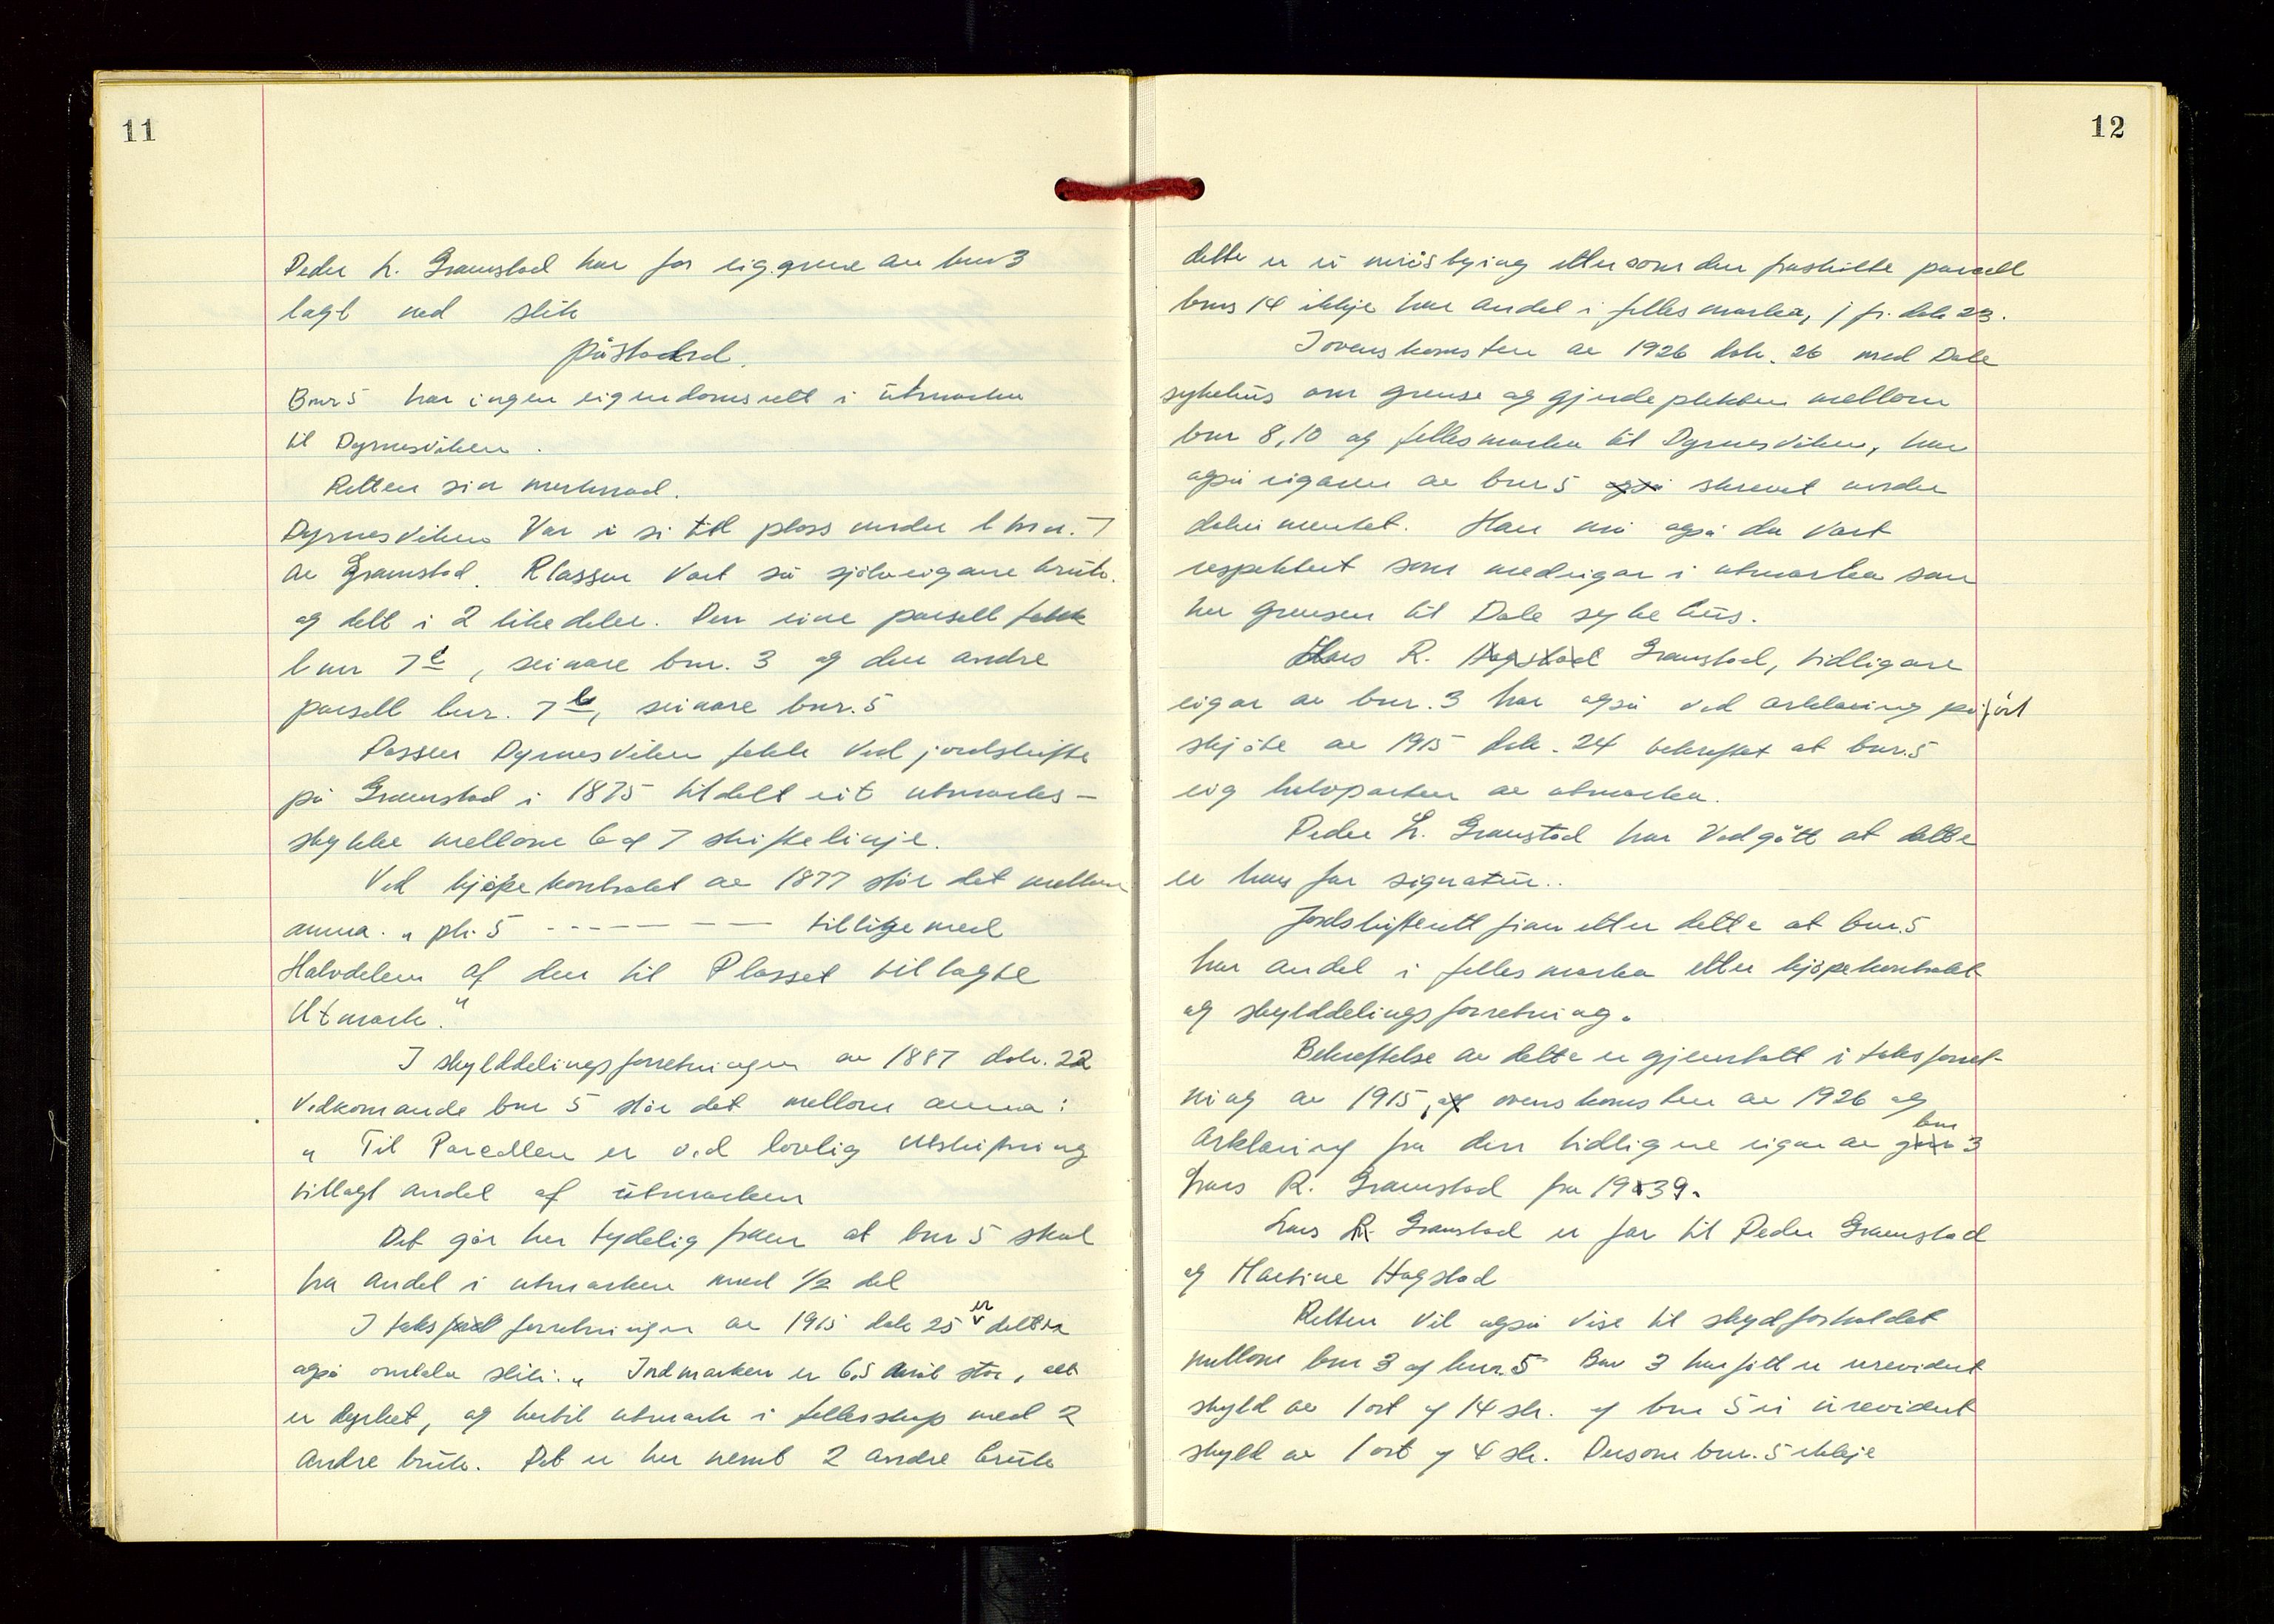 11
Peder L. Gramstad har for eig. grenn av bnr 3
lagt ned slik
påstand.
Bnr 5 har ingen eigendomsrett i utmarka
til Dyrnesviken.
Retten sin merknad.
Dyrnesviken var i si tid plass under l bnr. 7
av Gramstad. Plassen vart så sjølveigare bruk.
og delt i 2 like deler. Den eine parsell fekk
l nr 7c, seinare bnr. 3 og den andre
parsell lnr. 7b, seinare bnr. 5
Plassen Dyrnesviken fekk ved jordskifte
på Gramstad i 1875 tildelt eit utmarks-
stykke mellom 6 og 7 skiftelinje.
Ved kjøpekontrakt av 1877 står det mellom
anna. „ pk. 5 - - - - — — — tillige med
Halvdelen af den til Plasset tillagte
Utmark."
I skylddelingsforretningen av 1887 dok. 22
vedkomande bnr 5 står det mellom anna:
„ Til Parcellen er ved lovlig Utskiftning
tillagt andel af utmarken
Det går her tydelig fram at bnr 5 skal
ha andel i utmarken med 1/2 del
I taksforretningen av 1915 dok 25 er dette
også omtala slik: „ Indmarken er 6,5 mål stor, alt
er dyrket, og hertil utmark i fellesskap med 2
andre bruk. Det er her nemt 2 andre bruk
12
dette er ei misstying ettersom den fraskilte parsell
bnr 14 ikkje har andel i fellesmarka, jfr. dok 23.
I overenskomsten av 1926 dok. 26 med Dale
sykehus om grense og gjerdeplikten mellom
bnr 8, 10 og fellesmarka til Dyrnesviken, har
også eigaren av bnr 5 også skrevet under
dokumentet. Han må også da vart
respektert som medeigar i utmarka som
her grensen til Dale sykehus.
Lars R. Hogstad Gramstad, tidligare
eigar av bnr. 3 har også ved erklæring påført
skjøte av 1915 dok. 24 bekreftet at bnr. 5
eig halvparten av utmarka.
Peder L. Gramstad har vedgått at dette
er hans far signatur..
Jordskifterett finn etter dette at bnr. 5
har andel i fellesmarka etter kjøpekontrakt
og skylddelingsforretning.
Bekreftelse av dette er gjentatt i taksforret-
ning av 1915, og overenskomsten av 1926 og
erklæring fra den tidligare eigar av gnr bnr 3
Lars R. Gramstad fra 1939.
Lars R. Gramstad er far til Peder Gramstad
og Martine Hogstad
Retten vil også vise til skyldforholdet
mellom bnr 3 og bnr. 5 Bnr 3 har fått u urevidert
skyld av 1 ort og 14 sk. og bnr 5 ei urevidert
skyld av 1 ort og 4 sk. Dersom bnr. 5 ikkje